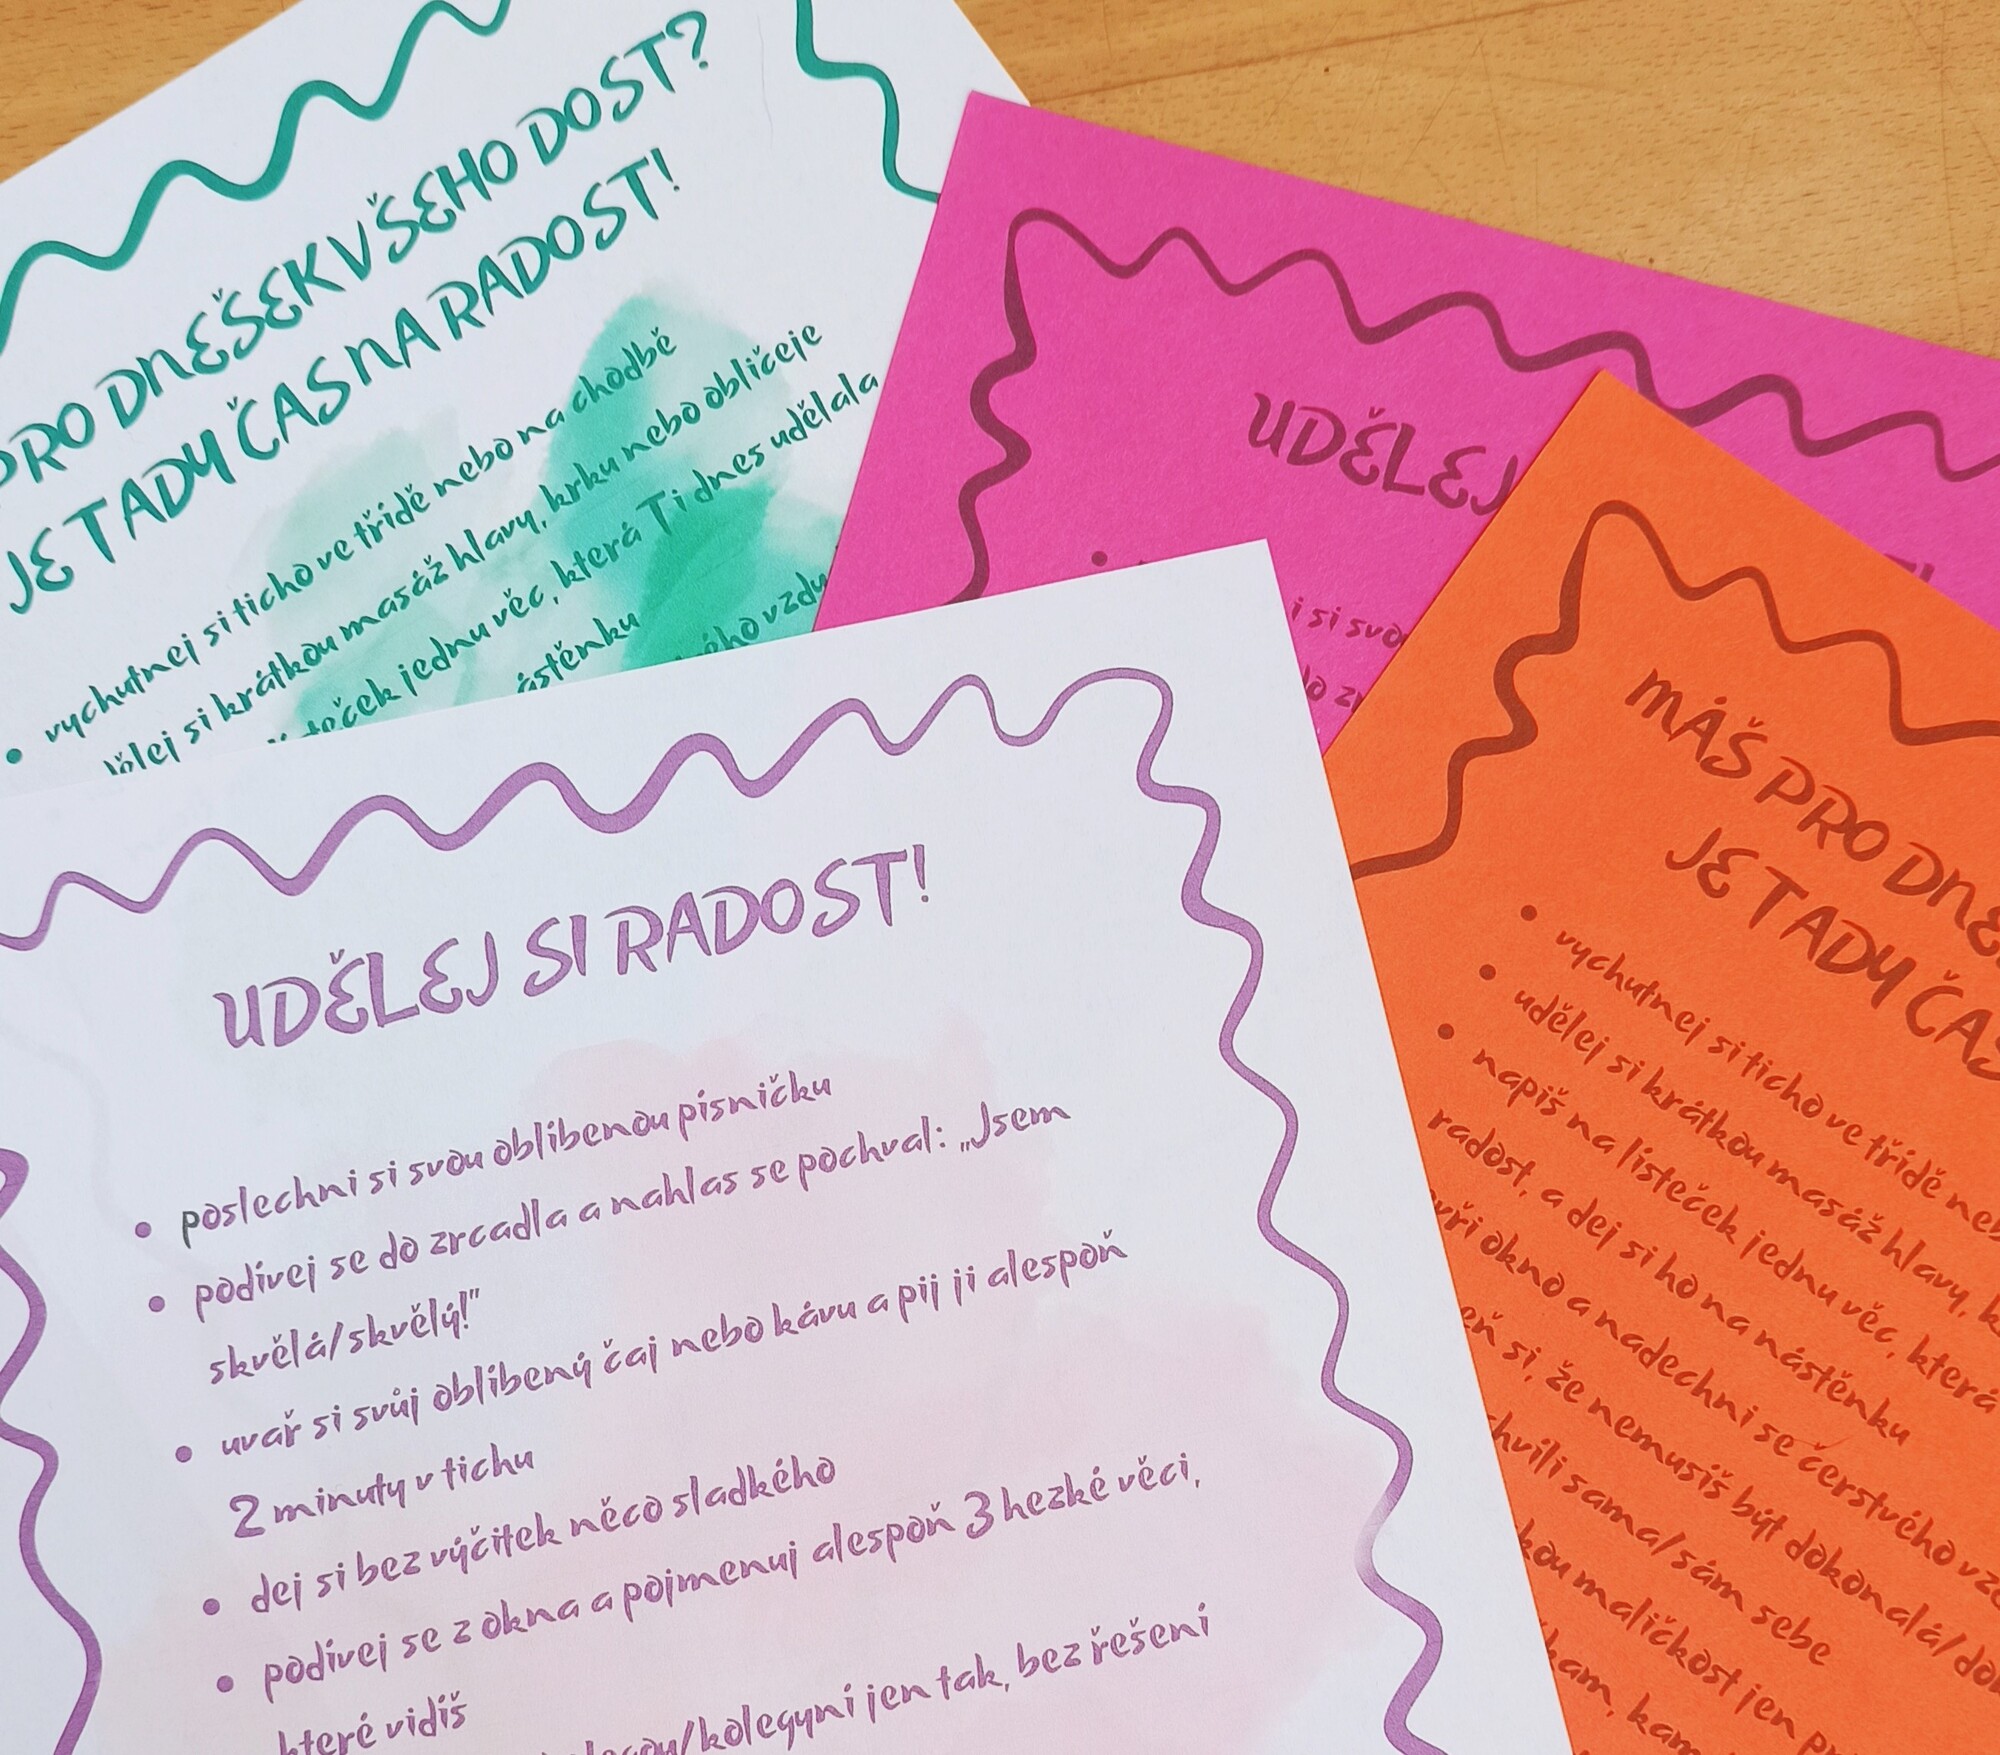 PRO DNEŠEK VŠEHO DOST?
JE TADY ČAS NA RADOST!
• vychutnej si ticho ve třídě nebo na chodbě
si krátkou masáž hlavy, krku nebo obličeje
jednu věc, která Ti dnes udělala
UDĚLEJ
i si
MÁŠ PRO
JE TADY ČAS
• vychutnej si ticho ve třídě
• udělej si krátkou masáž hlavy,
• napiš na lísteček jednu věc, která
radost, a dej si ho na nástěnku
okno a nadechni se čerstvého
si, že nemusíš být dokonalá/
chvíli sama/sám sebe
maličkost jen
UDĚLEJ SI RADOST!
• poslechni si svou oblíbenou písničku
• podívej se do zrcadla a nahlas se pochval: „Jsem
skvělá/skvělý!"
• uvař si svůj oblíbený čaj nebo kávu a pij ji alespoň
2 minuty v tichu
• dej si bez výčitek něco sladkého
• podívej se z okna a pojmenuj alespoň 3 hezké věci,
které vidíš
kolegyní jen tak, bez řešení